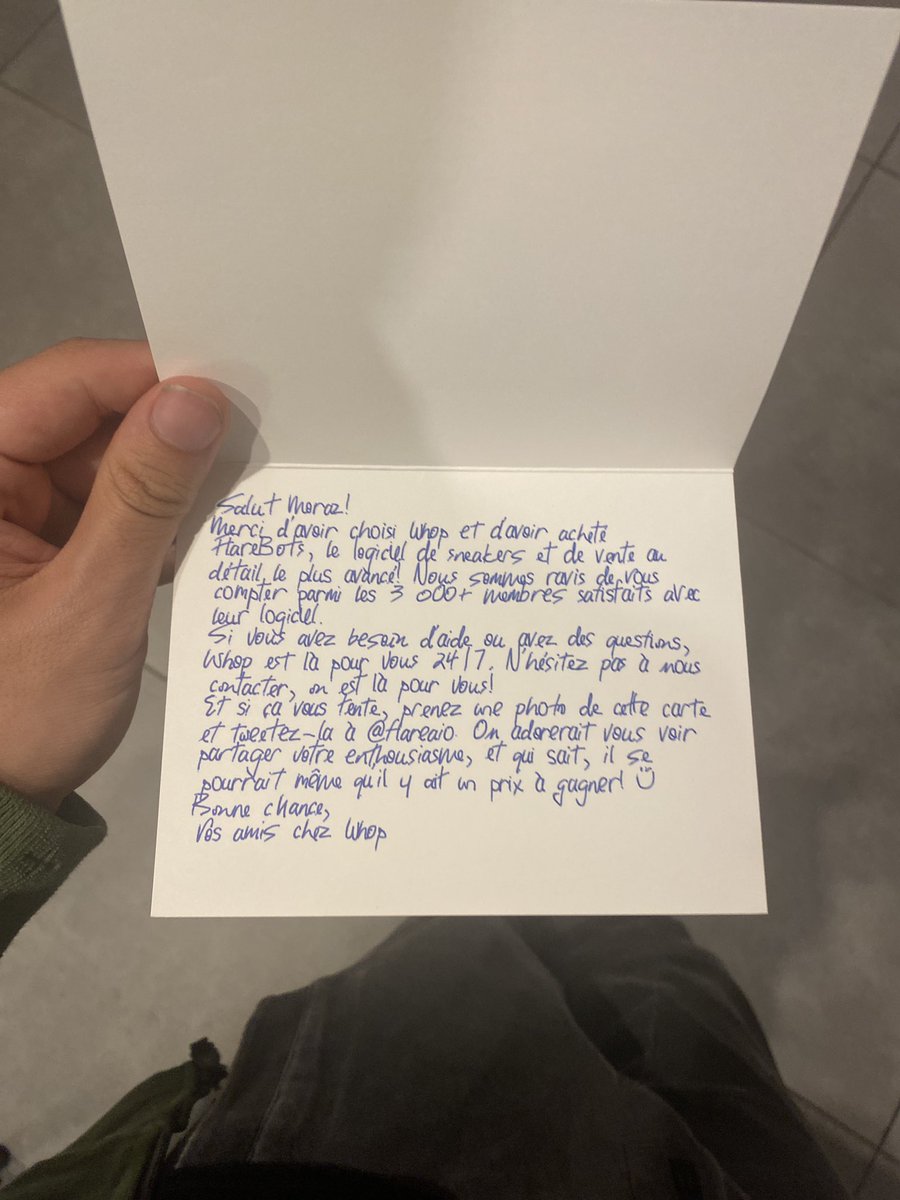 Salut Moraz!
Merci d'avoir choisi Whop et d'avoir acheté
FlareBots, le logiciel de sneakers et de vente au
détail le plus avancé! Nous sommes ravis de vous
compter parmi les 3 000+ membres satisfaits avec
leur logiciel.
Si vous avez besoin d'aide ou avez des questions,
Whop est là pour vous 24/7. N'hésitez pas à nous
contacter, on est là pour vous!
Et si ça vous tente, prenez une photo de cette carte
et tweetez-la à @flareaio. On adorerait vous voir
partager votre enthousiasme, et qui sait, il se
pourrait même qu'il y ait un prix à gagner! :)
Bonne chance,
Vos amis chez Whop